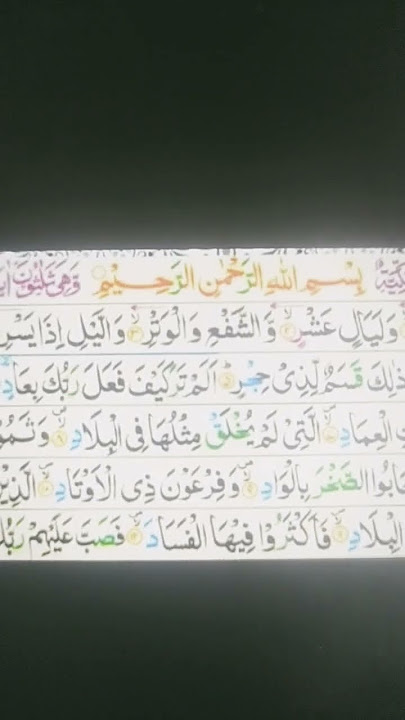 بِسْمِ اللهِ الرَّحْمٰنِ الرَّحِيْمِ وَهِيَ ثَلٰثُوْنَ
وَلَيَالٍ عَشْرٍ ۙ‏﴿۲﴾ وَّالشَّفْعِ وَالْوَتْرِ ۙ‏﴿۳﴾ وَالَّيْلِ اِذَا يَسْرِ
ذٰلِكَ قَسَمٌ لِّذِيْ حِجْرٍ ؕ‏﴿۵﴾ اَلَمْ تَرَ كَيْفَ فَعَلَ رَبُّكَ بِعَادٍ
الْعِمَادِ ۙ‏﴿۷﴾ الَّتِيْ لَمْ يُخْلَقْ مِثْلُهَا فِي الْبِلَادِ ۙ‏﴿۸﴾
جَابُوا الصَّخْرَ بِالْوَادِ ۙ‏﴿۹﴾ وَفِرْعَوْنَ ذِي الْاَوْتَادِ ۙ‏﴿۱۰﴾ الَّذِيْنَ
الْبِلَادِ ۙ‏﴿۱۱﴾ فَاَكْثَرُوْا فِيْهَا الْفَسَادَ ۙ‏﴿۱۲﴾ فَصَبَّ عَلَيْهِمْ رَبُّكَ